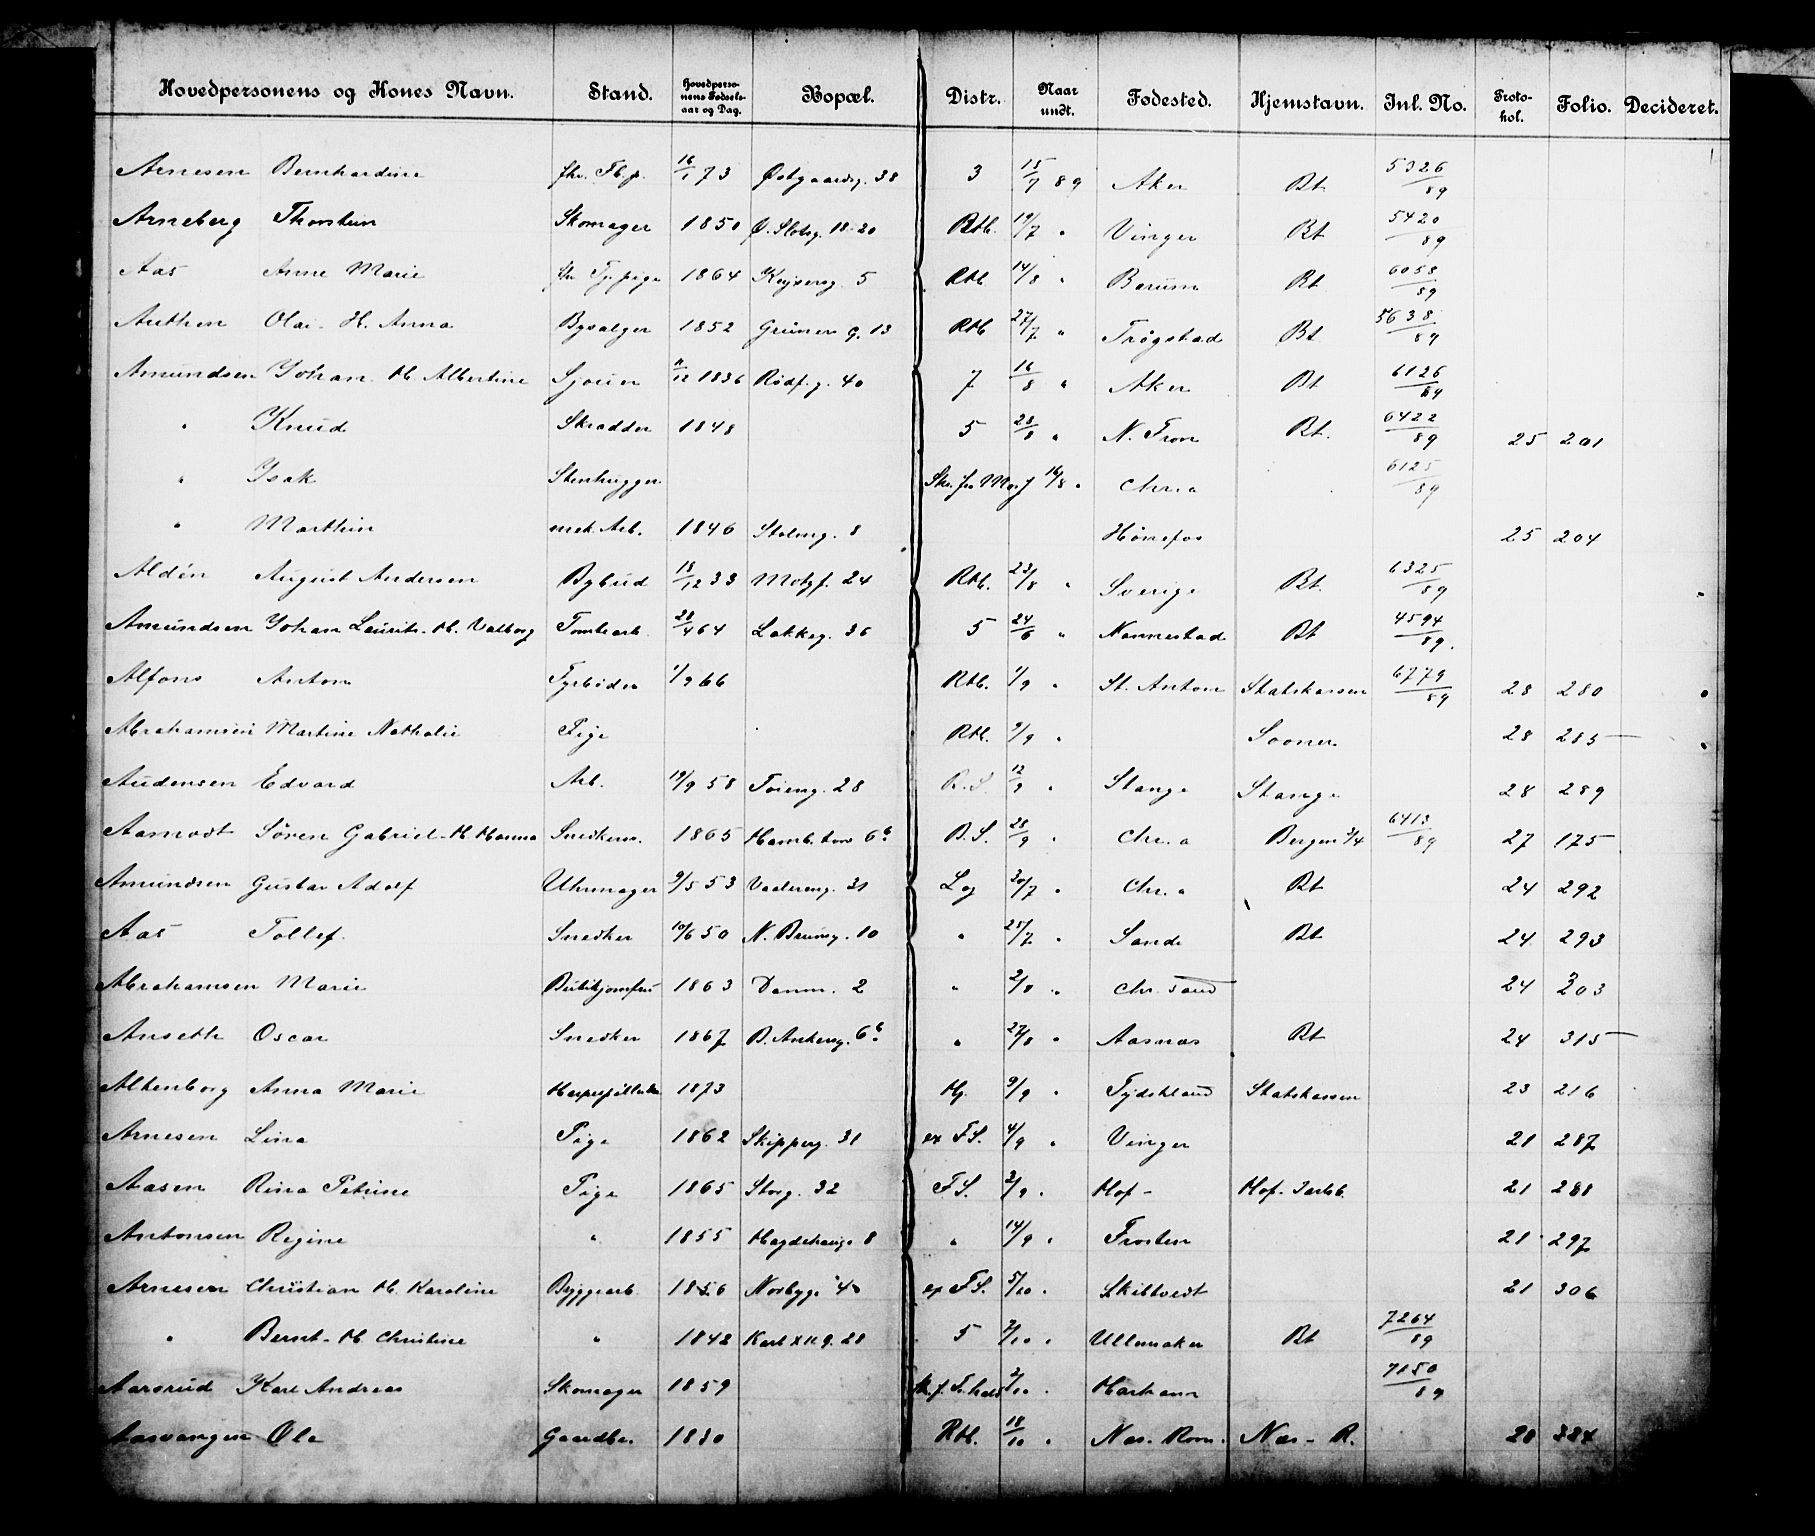 Hovedpersonens og Kones Navn. Stand. Hovedpersonens Fødselsaar og Dag. Bopæl. Distr. Naar undt. Fødested. Hjemstavn. Inl. No. Protokol. Folio. Decideret.
Arnesen Bernhardine 16/1 73 Østgaardsg. 38 3 15/7 89 Aker Bt 5326/89
Arneberg Thorstein Skomager 1850 Ø. Slotsg. 18-20 Rtb. 19/7 " Vinger Bt 5420/89
Aas Anne Marie 1864 Keysersg. 5 Rtb 14/8 " Bærum Bt 6058/89
Authen Olai - H. Anna Bysælger 1852 Grüners g. 13 Rtb 27/7 " Trøgstad Bt. 5638/89
Amundsen Johan H. Albertine Sjouer 11/12 1836 Rødf. g. 40 7 16/8 " Aker Bt 6126/89
" Knud Skrædder 1848 5 28/8 " N. Fron Bt. 6422/89 25 201
" Isak Stenhugger 16/8 " Chr.a 6125/89
" Marthin mek. Arb. 1846 Stolmg. 8 Hønefos 25 204
Aldén August Andersen Bybud 18/12 33 Motzf. 24 Rtb. 23/8 " Sverige Bt. 6325/89
Amundsen Johan Laurits - H. Valborg Tomtearb. 28/4 64 Lakkeg. 36 5 24/6 " Nannestad Bt 4594/89.
Alfons Anton Fyrbøder 1/9 66 Rtb. 1/9 " St. Anton Statskassen 6779/89 28 280
Abrahamsen Martine Nathalie Pige Rtb. 9/9 " Sooner 28 285
Audensen Edvard Arb. 19/9 58 Tøieng. 28 B.S. 12/9 " Stange Stange 28 289
Aamodt Søren Gabriel - H. Hanna Snedkers. 1865 6b B.S. 28/9 " Chr.a Bergen 3/4 6413/89 27 175
Amundsen Gustav Adolf Uhrmager 9/5 53 Vaalereng. 31 Lg 30/7 " Chr.a Bt 24 292
Aas Tollef. Snedker 10/6 50 N. Brunsg. 10 " 25/7 " Sande Bt 24 293
Abrahamsen Marie Butikjomfru 1863 Damm. 2 " 2/8 " Chr. sand 24 303
Anseth Oscar Snedker 1867 B. Ankerg. 6b " 27/8 " Aasnæs Bt 24 315
Altenborg Anna Marie Harpespillerske 1873 Hj. 9/9 " Tydskland Statskassen 23 216
Arnesen Lina Pige 1862 Skipperg. 31 ex F.S. 4/9 " Vinger 21 287
Aasen Rina Petrine Pige 1865 Storg. 32 F.S. 2/9 " Hof - Hof. Jarlsb. 21 288
Antonsen Regine " 1855 Hegdehaugs 8 " 14/9 " Frosten 21 297
Arnesen Christian H. Karoline Byggearb. 1856 Norbyg. 40 ex F.S. 5/10 " Skibtvedt 21 306
" Bernt - H. Christine " 1842 Karl XII g. 28 5 7/10 " Ullensaker Bt 7264/89
Aarsrud Karl Andreas Skomager 1859 2/10 " 7150/89
Aasvangen Ole Gaardbr. 1830 Rtb. 18/10 " Næs. Rom. Næs - R. 28 384